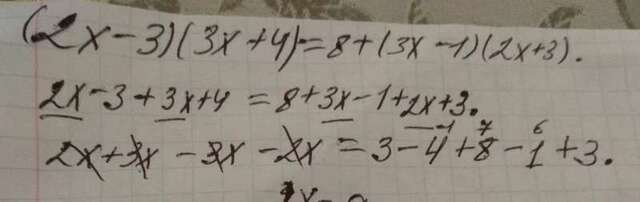 (2x-3)(3x+4)=8+(3x-1)(2x+3).
2x-3+3x+4=8+3x-1+2x+3.
-1 7 6
2x+3x-3x-2x=3-4+8-1+3.